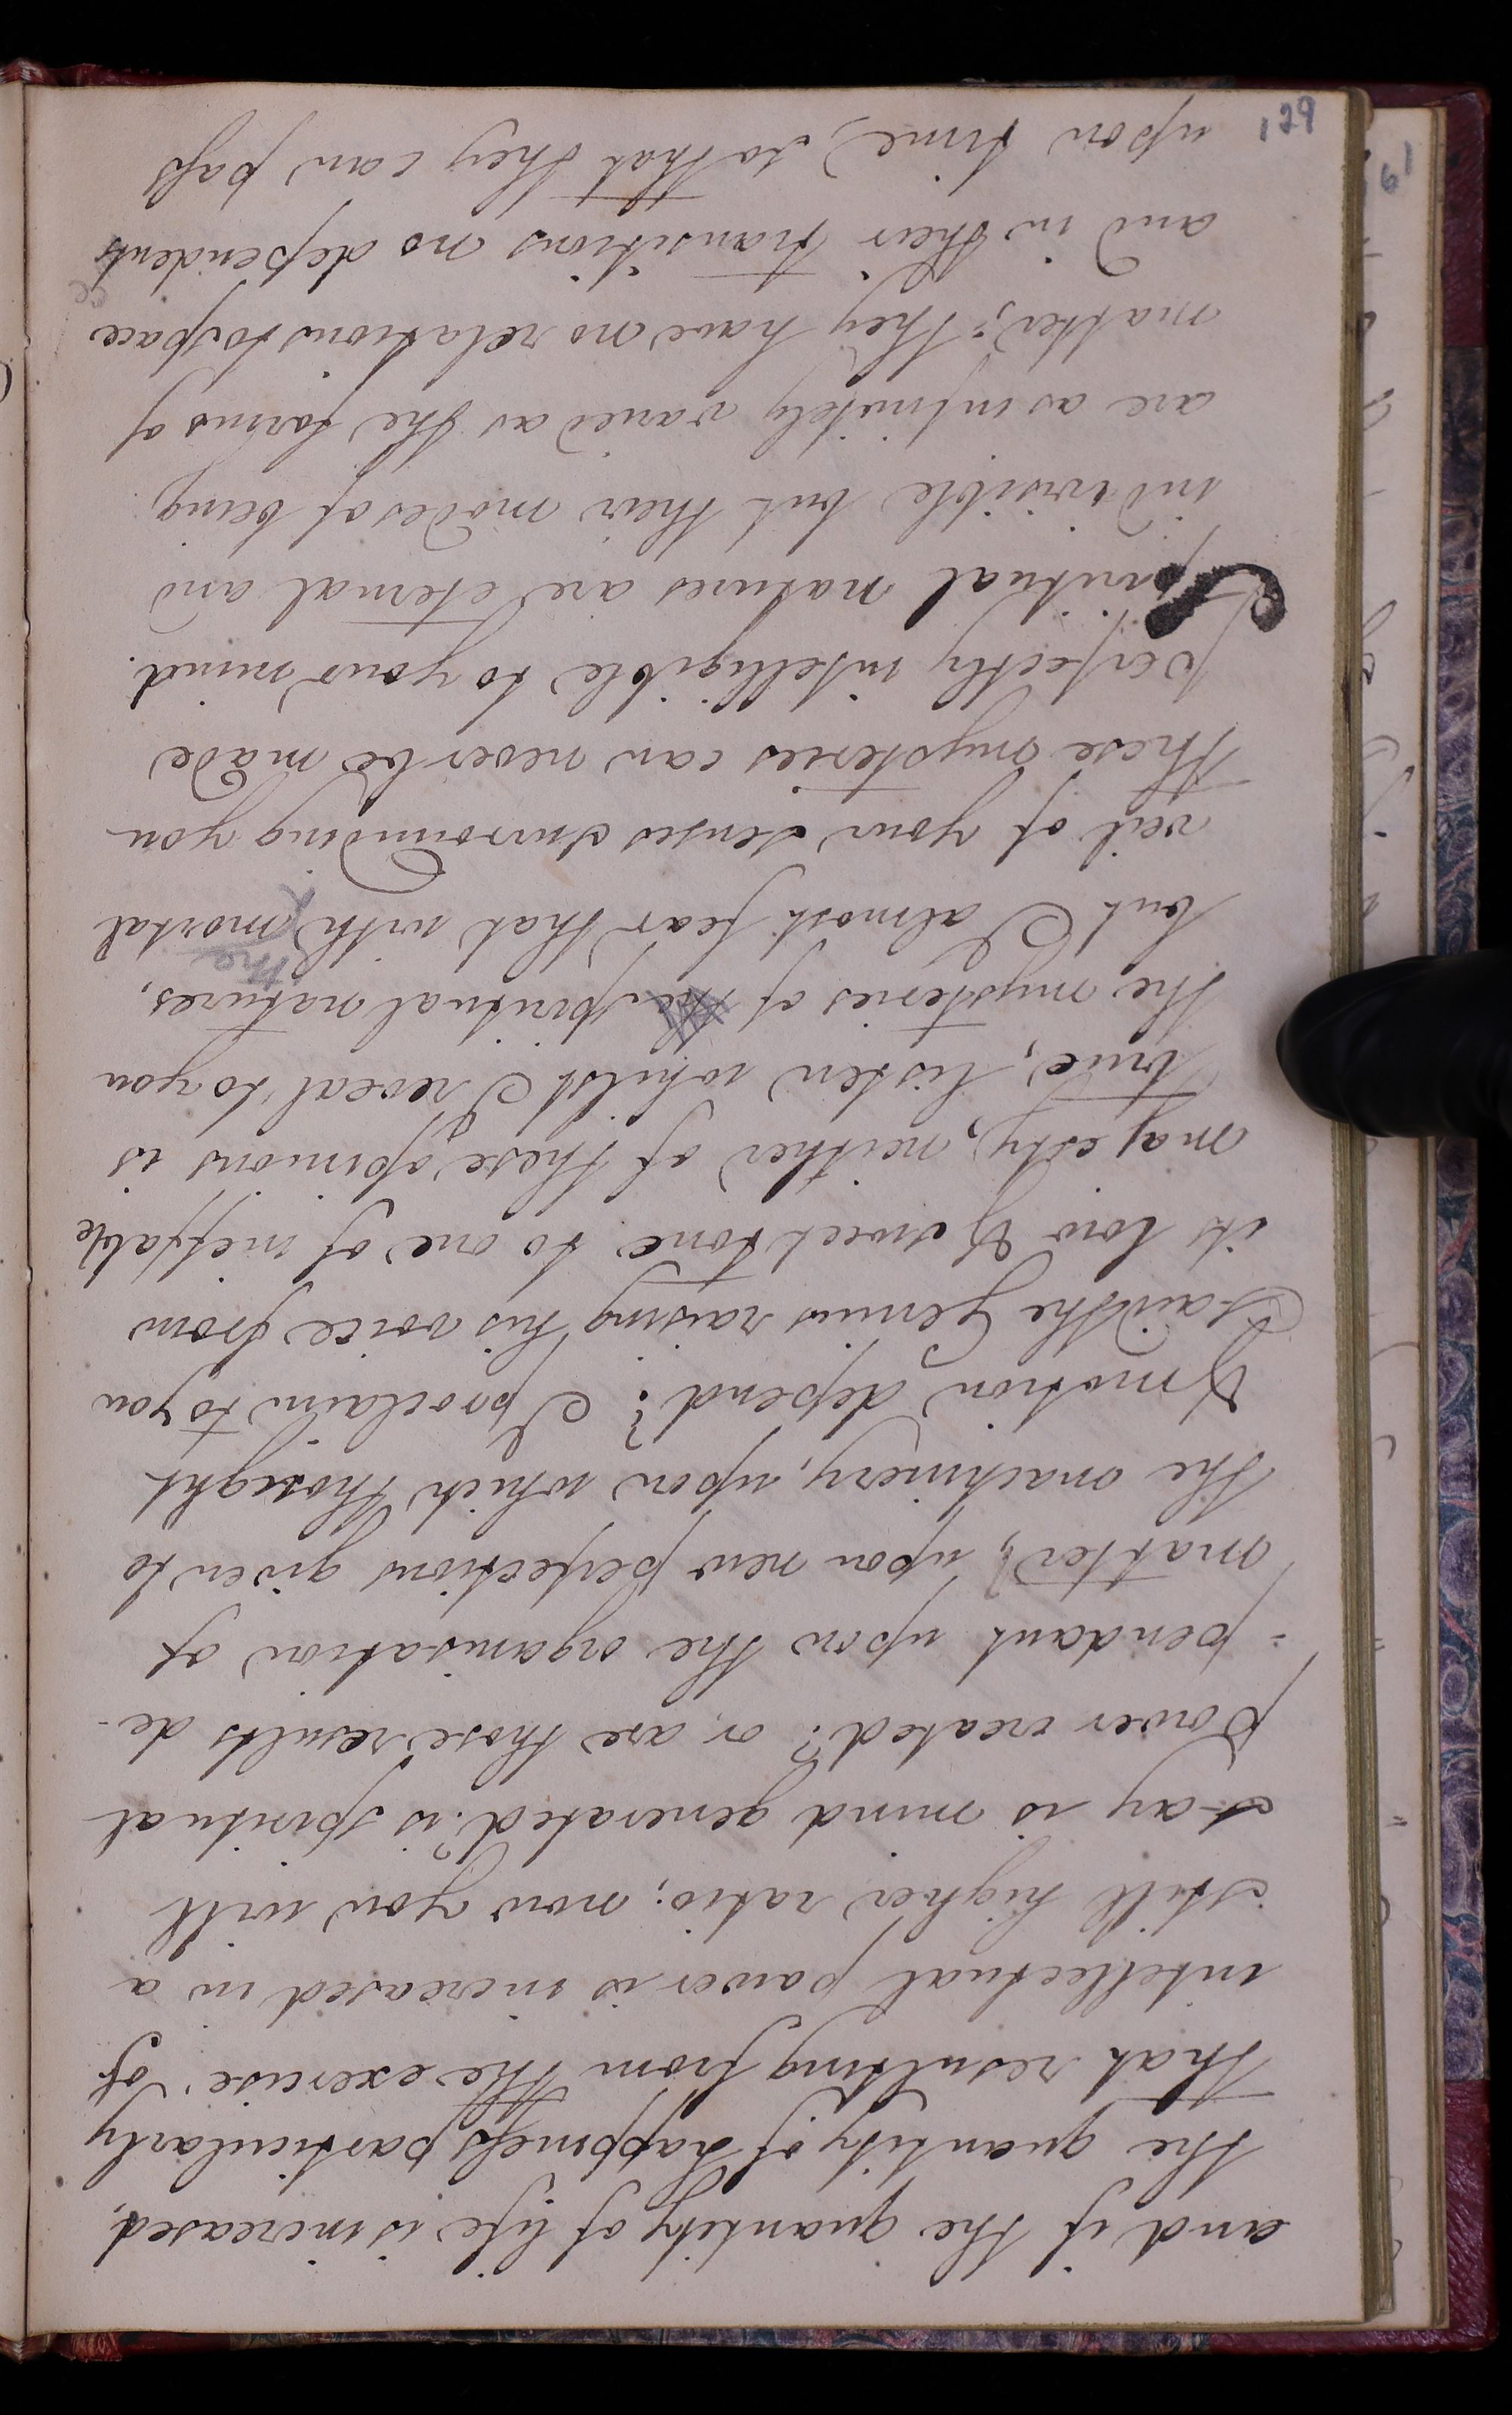 and if the quantity of life is increased,
the quantity of happiness particularly
that resulting from the exercise of
intellectual power is increased in a
still higher ratio; now you will
say is mind generated? is spiritual
power created? or are those results de-
=pendant upon the organisation of
matter, upon new perfections given to
the machinery, upon which thought
& motion depend? I proclaim to you
said the Genius raising his voice from
its low & sweet tone to one of ineffable
majesty, neither of these opinions is
true, listen whilst I reveal to you
the mysteries of the spiritual natures,
the
but I almost fear that with mortal
veil of your senses surrounding you
these mysteries can never be made
perfectly intelligible to your mind.
Spiritual natures are eternal and
indivisible but their modes of being
are as infinitely varied as the forms of
matter; they have no relations to space
and in their transitions no dependents
ce
upon time, so that they can pass
129